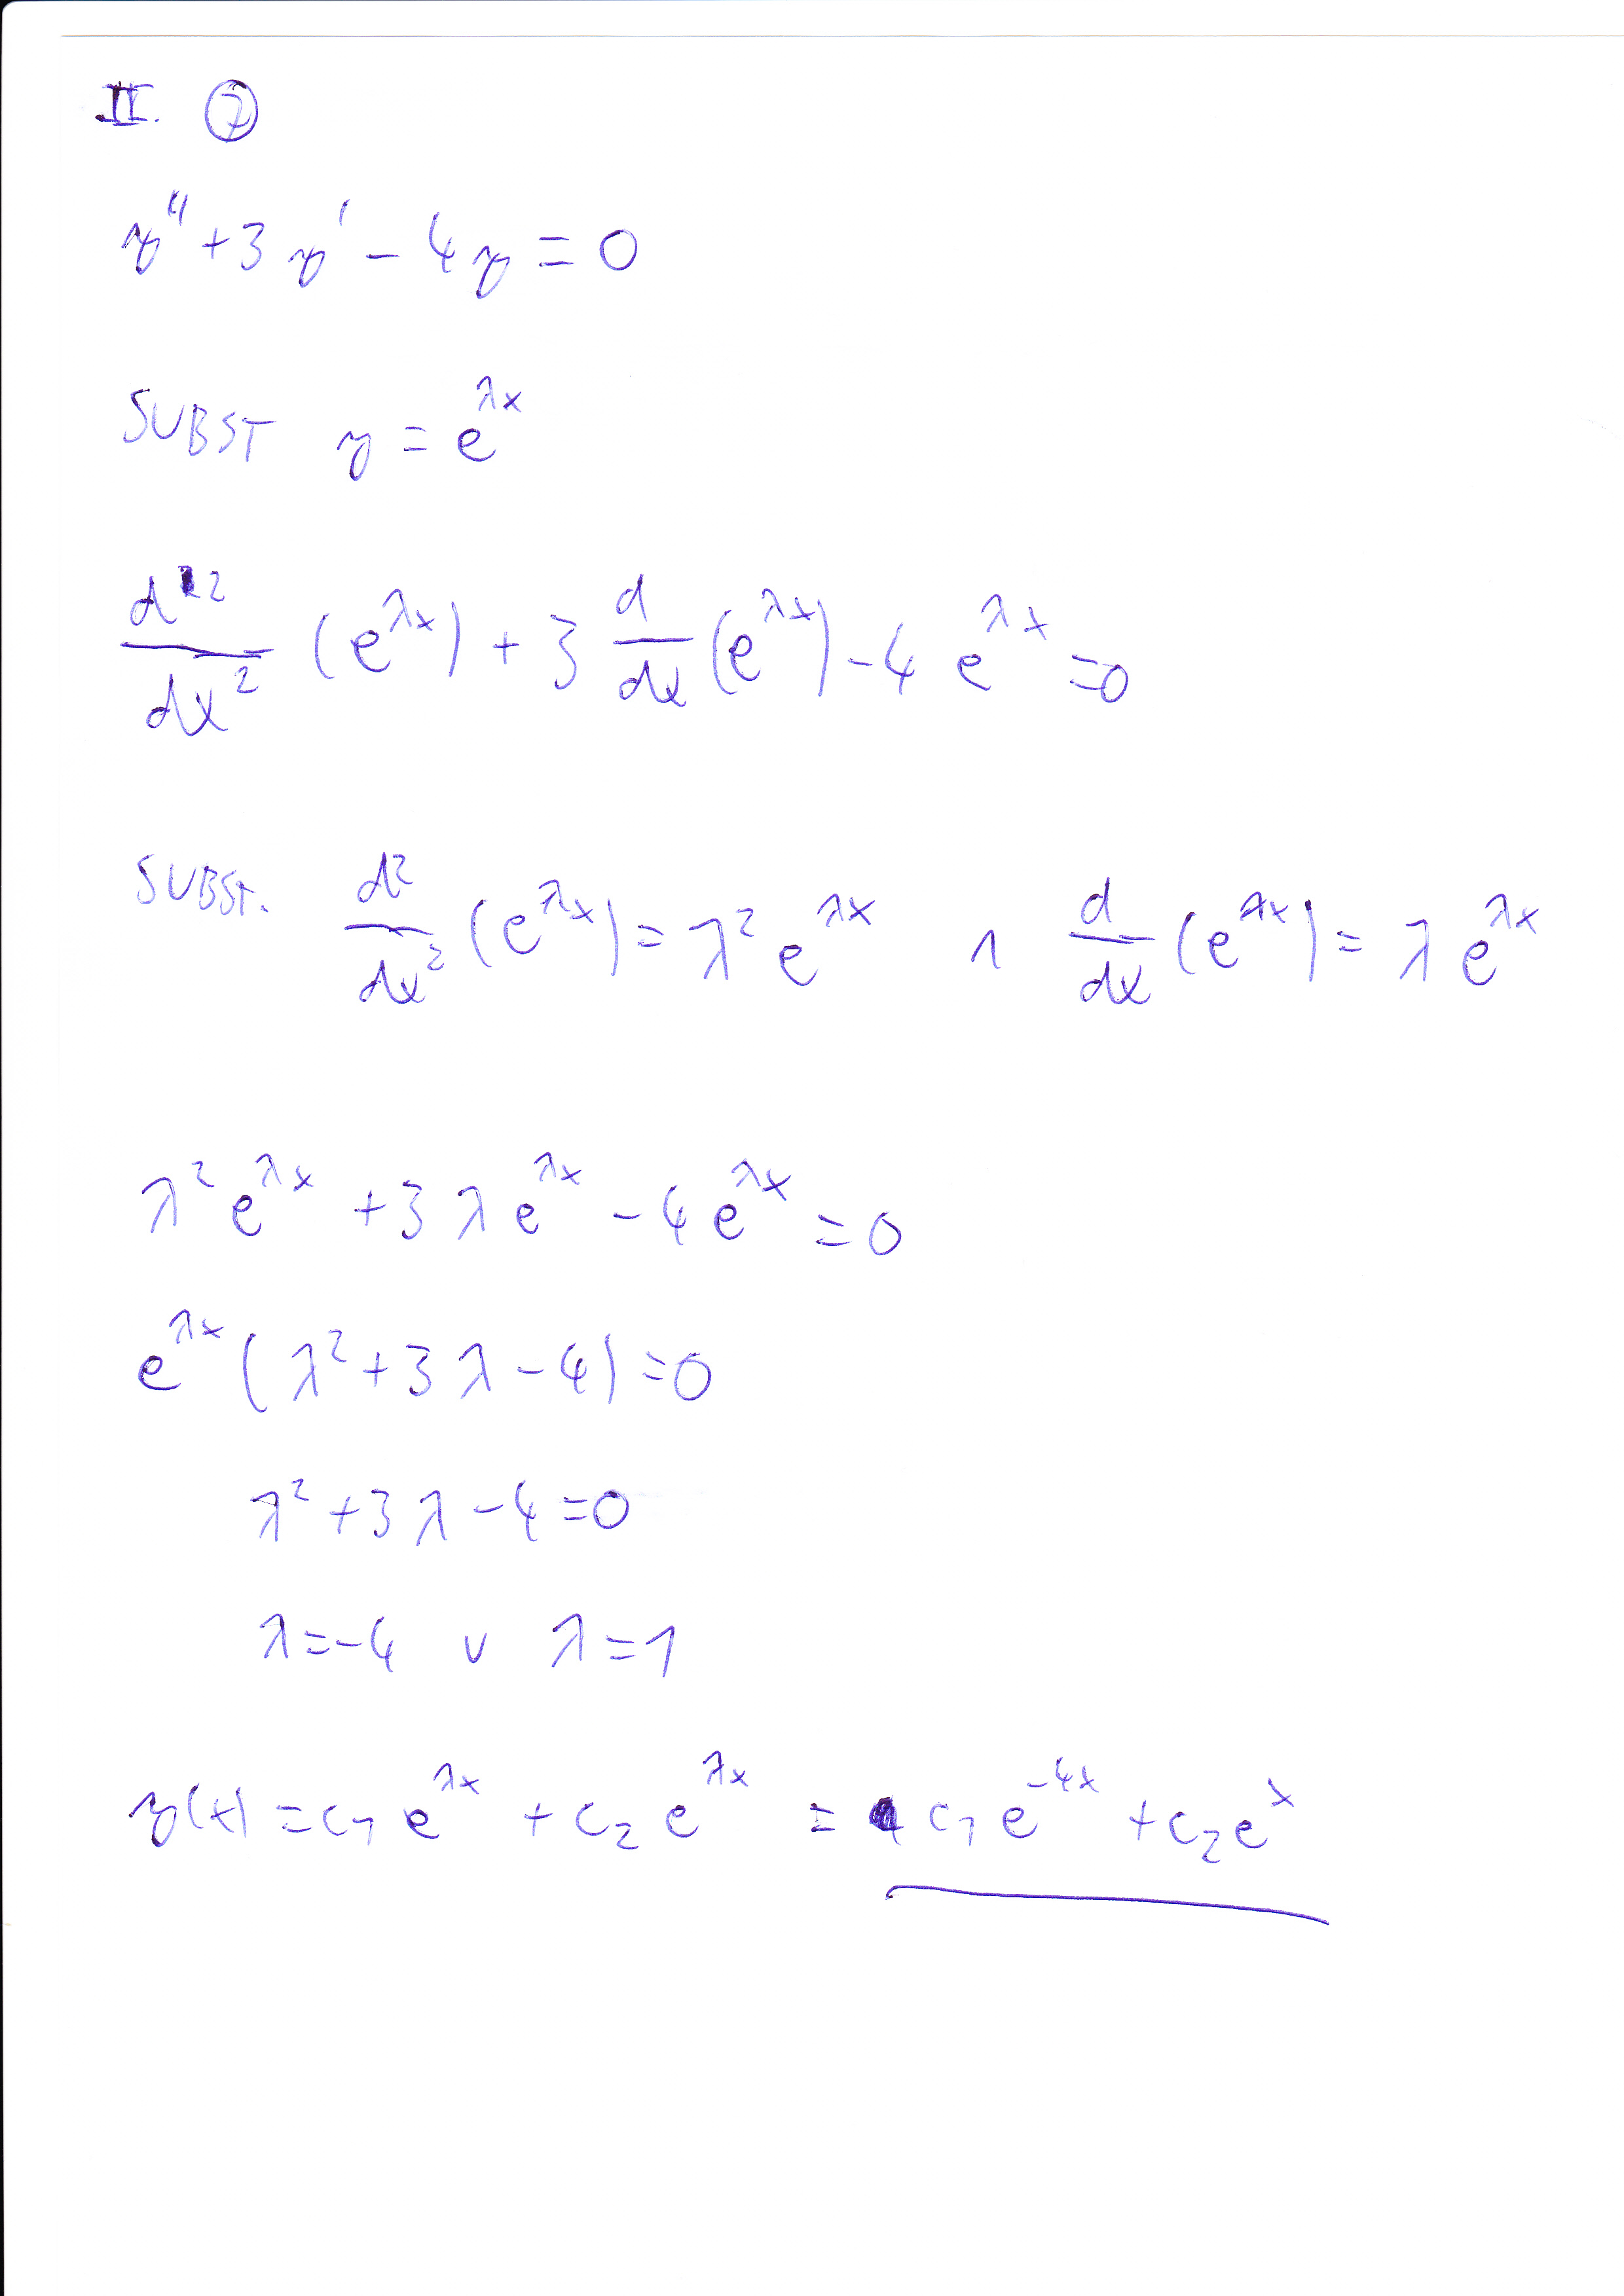 II. ⑦
y'' + 3y' - 4y = 0
SUBST y = e^{λx}
d²/dx² (e^{λx}) + 3 d/dx (e^{λx}) - 4 e^{λx} = 0
SUBST. d²/dx² (e^{λx}) = λ² e^{λx} ∧ d/dx (e^{λx}) = λ e^{λx}
λ² e^{λx} + 3 λ e^{λx} - 4 e^{λx} = 0
e^{λx} ( λ² + 3 λ - 4 ) = 0
λ² + 3 λ - 4 = 0
λ = -4 ∨ λ = 1
y(x) = c₁ e^{λx} + c₂ e^{λx} = c₁ e^{-4x} + c₂ e^{x}